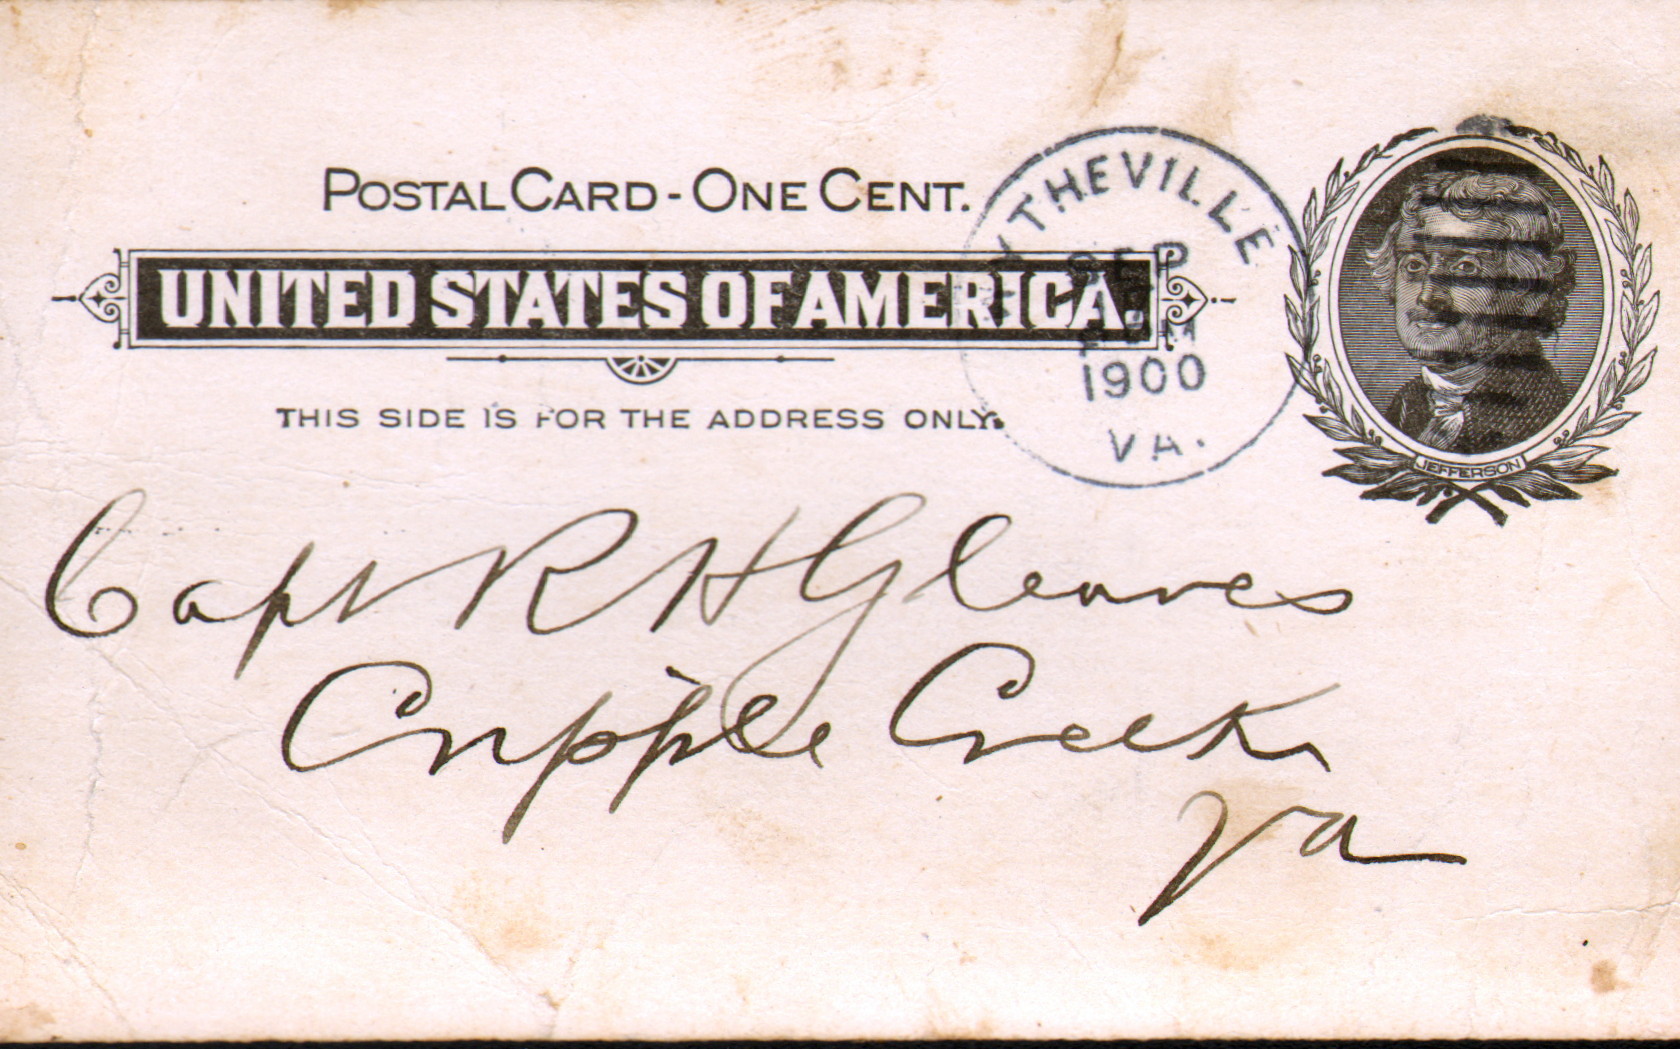 POSTAL CARD - ONE CENT.
UNITED STATES OF AMERICA.
THIS SIDE IS FOR THE ADDRESS ONLY.
WYTHEVILLE
SEP
PM
1900
VA.
JEFFERSON
Capt R H Gleaves
Cripple Creek
Va